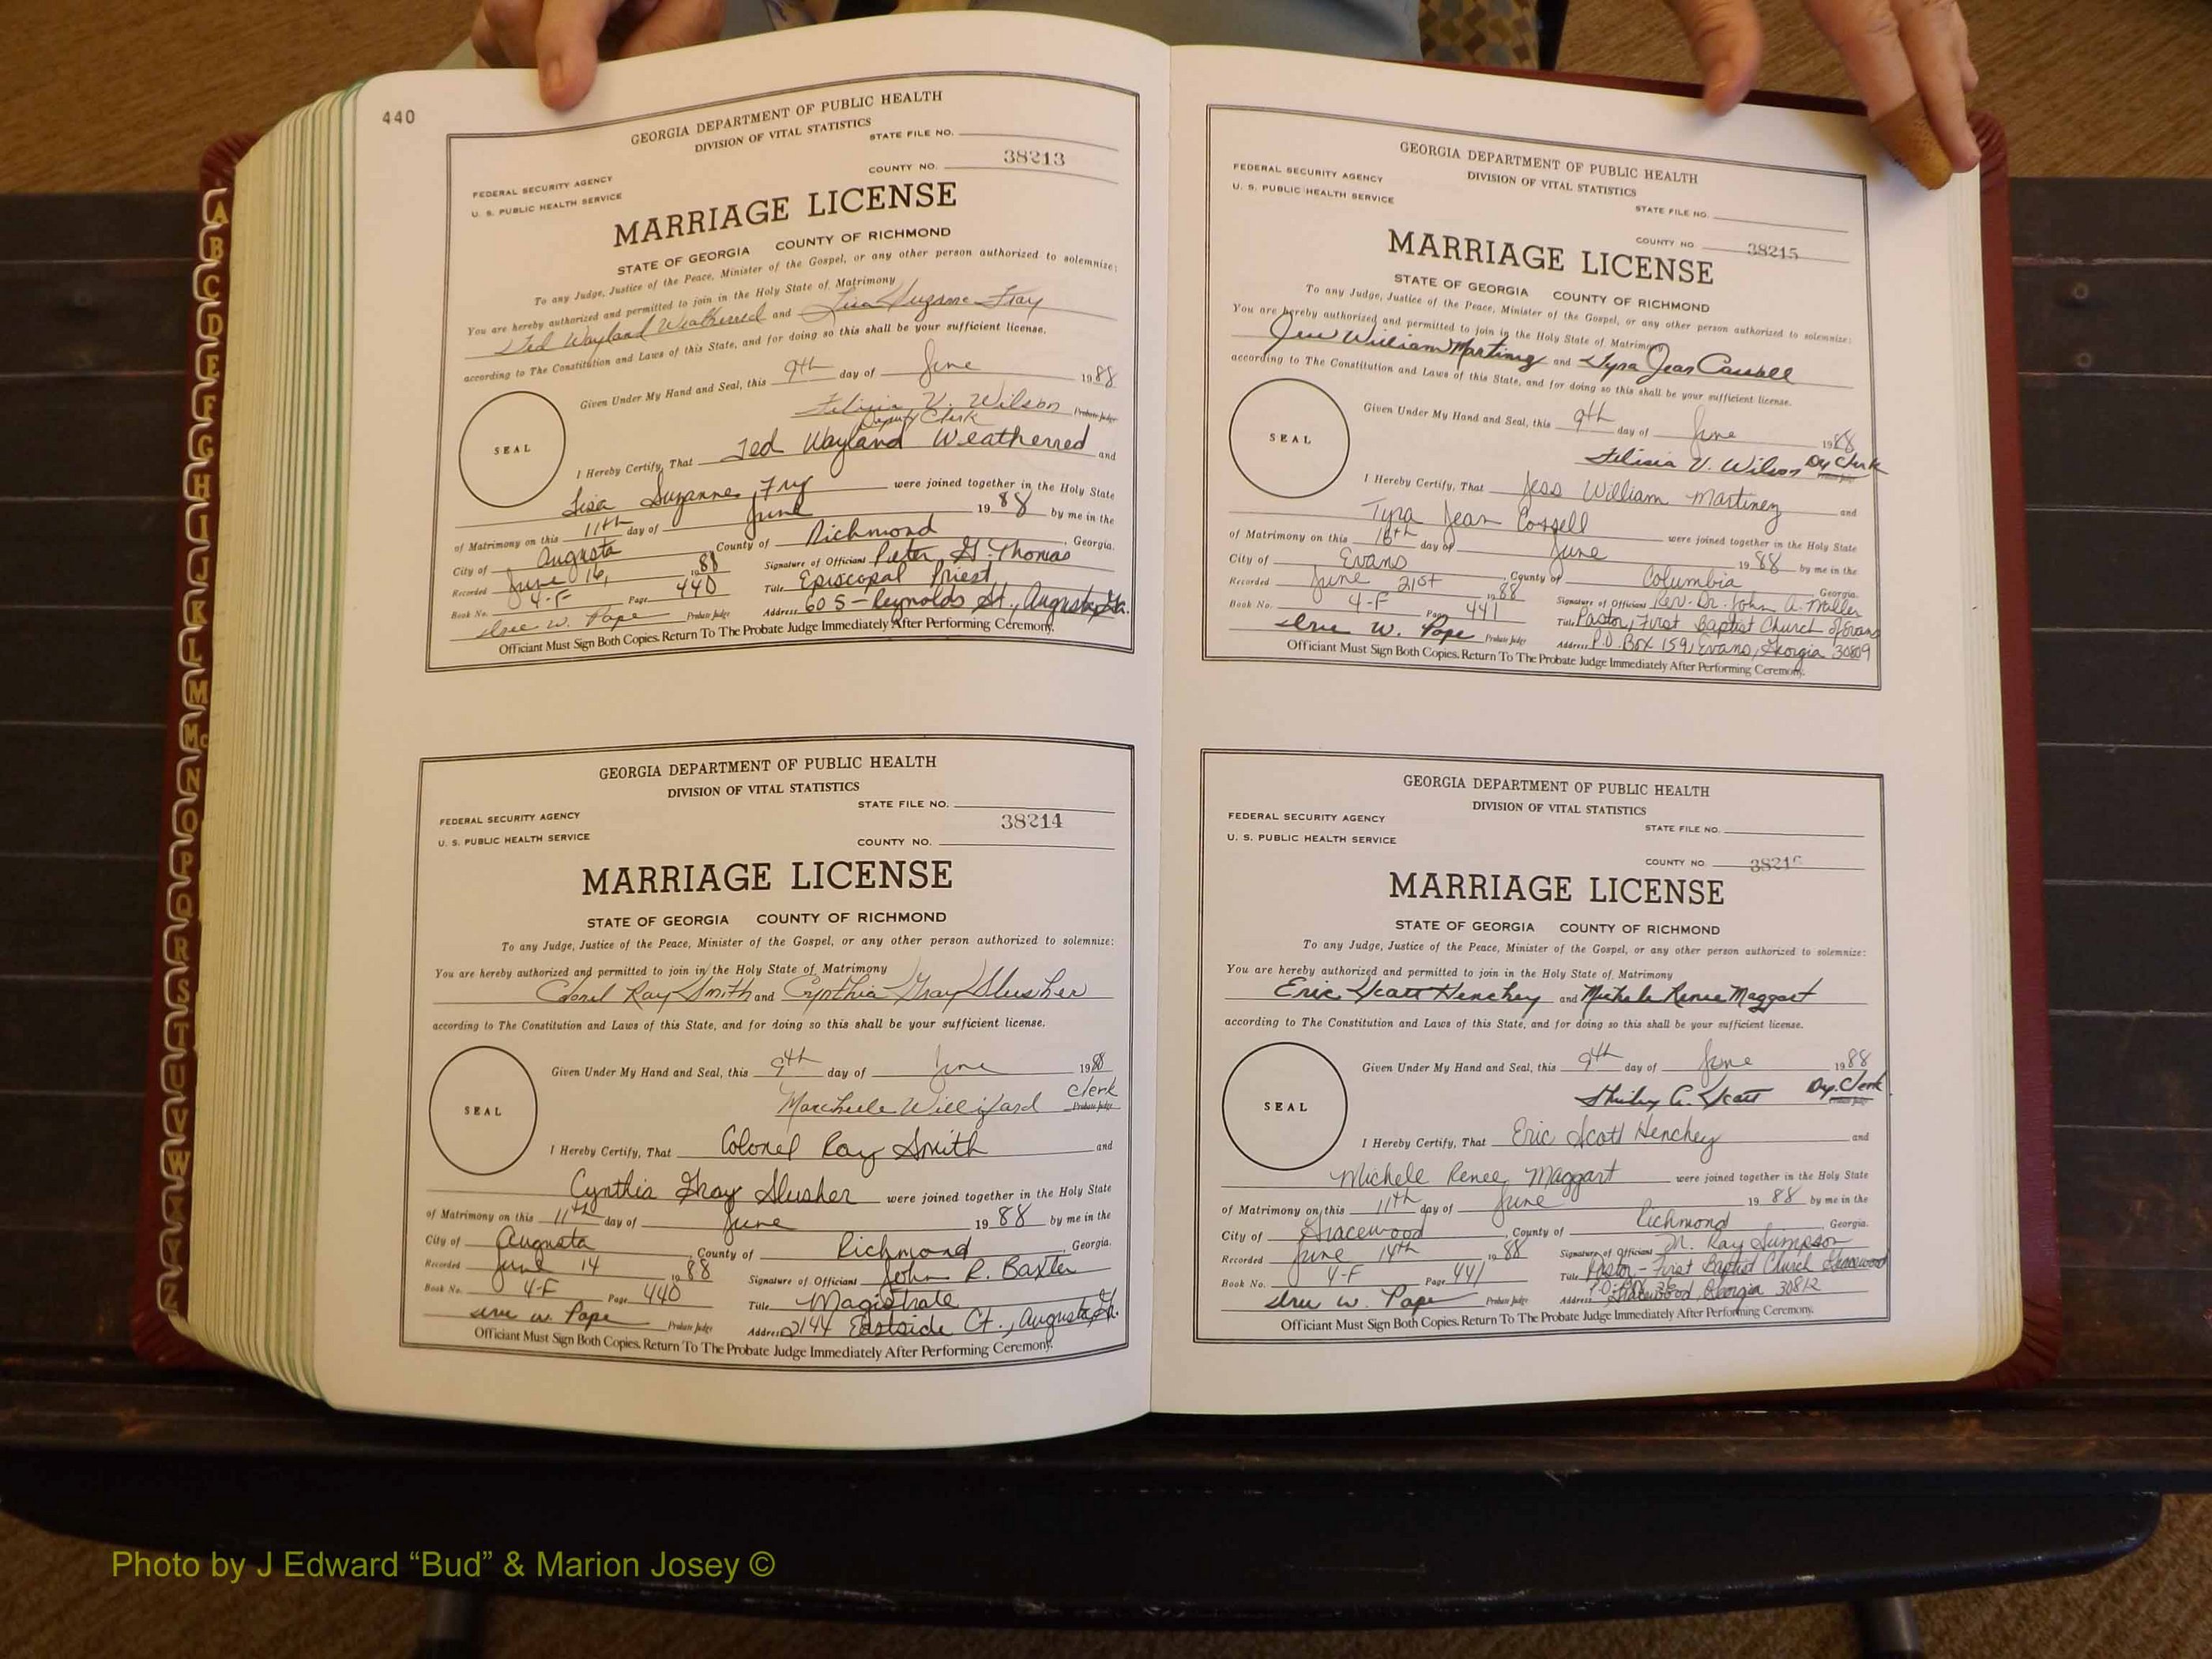 440
GEORGIA DEPARTMENT OF PUBLIC HEALTH
DIVISION OF VITAL STATISTICS
STATE FILE NO.
38213
COUNTY NO.
FEDERAL SECURITY AGENCY
U. S. PUBLIC HEALTH SERVICE
MARRIAGE LICENSE
STATE OF GEORGIA COUNTY OF RICHMOND
To any Judge, Justice of the Peace, Minister of the Gospel, or any other person authorized to solemnize:
You are hereby authorized and permitted to join in the Holy State of Matrimony
Ted Wayland Weatherred and Lisa Suzanne Fray
according to The Constitution and Laws of this State, and for doing so this shall be your sufficient license.
Given Under My Hand and Seal, this 9th day of June 1988
Felisia V. Wilson Probate Judge
Deputy Clerk
SEAL
I Hereby Certify, That Ted Wayland Weatherred and
Lisa Suzanne Fry were joined together in the Holy State
of Matrimony on this 11th day of June 1988 by me in the
City of Augusta County of Richmond, Georgia.
Recorded June 16, 1988 Signature of Officiant Peter G. Thomas
Book No. 4-F Page 440 Title Episcopal Priest
Probate Judge Address 605-Reynolds St., Augusta, Ga.
W. Pope
Officiant Must Sign Both Copies. Return To The Probate Judge Immediately After Performing Ceremony.
GEORGIA DEPARTMENT OF PUBLIC HEALTH
DIVISION OF VITAL STATISTICS
STATE FILE NO.
FEDERAL SECURITY AGENCY
38214
U. S. PUBLIC HEALTH SERVICE
COUNTY NO.
MARRIAGE LICENSE
STATE OF GEORGIA COUNTY OF RICHMOND
To any Judge, Justice of the Peace, Minister of the Gospel, or any other person authorized to solemnize:
You are hereby authorized and permitted to join in the Holy State of Matrimony
Colonel Ray Smith and Cynthia Gray Slusher
according to The Constitution and Laws of this State, and for doing so this shall be your sufficient license.
Given Under My Hand and Seal, this 9th day of June 1988
Williford Clerk
Probate Judge
SEAL
I Hereby Certify, That Colonel Ray Smith and
Cynthia Gray Slusher were joined together in the Holy State
of Matrimony on this 11th day of June 1988 by me in the
City of Augusta, County of Richmond, Georgia.
Recorded June 14 1988 Signature of Officiant John R. Baxter
Book No. 4-F Page 440 Title Magistrate
W. Pope Probate Judge Address 2144 Eastside Ct., Augusta, Ga.
Officiant Must Sign Both Copies. Return To The Probate Judge Immediately After Performing Ceremony.
GEORGIA DEPARTMENT OF PUBLIC HEALTH
DIVISION OF VITAL STATISTICS
FEDERAL SECURITY AGENCY
U. S. PUBLIC HEALTH SERVICE
STATE FILE NO.
COUNTY NO. 38215
MARRIAGE LICENSE
STATE OF GEORGIA COUNTY OF RICHMOND
To any Judge, Justice of the Peace, Minister of the Gospel, or any other person authorized to solemnize:
You are hereby authorized and permitted to join in the Holy State of Matrimony
Jess William Martinez and Tyra Jean Cassell
according to The Constitution and Laws of this State, and for doing so this shall be your sufficient license.
Given Under My Hand and Seal, this 9th day of June 1988
Felisia V. Wilson Dy Clerk
Probate Judge
SEAL
I Hereby Certify, That Jess William Martinez and
Tyra Jean Cassell were joined together in the Holy State
of Matrimony on this 18th day of June 1988 by me in the
City of Evans, County of Columbia Georgia.
Recorded June 21st 1988 Signature of Officiant Rev. Dr. John A. Miller
Book No. 4-F Page 441 Title Pastor, First Baptist Church of Evans
W. Pope Probate Judge Address P.O. Box 159, Evans, Georgia 30809
Officiant Must Sign Both Copies. Return To The Probate Judge Immediately After Performing Ceremony.
GEORGIA DEPARTMENT OF PUBLIC HEALTH
DIVISION OF VITAL STATISTICS
FEDERAL SECURITY AGENCY
STATE FILE NO.
U. S. PUBLIC HEALTH SERVICE
COUNTY NO. 38216
MARRIAGE LICENSE
STATE OF GEORGIA COUNTY OF RICHMOND
To any Judge, Justice of the Peace, Minister of the Gospel, or any other person authorized to solemnize:
You are hereby authorized and permitted to join in the Holy State of Matrimony
Eric Scott Henchey and Michele Renee Maggart
according to The Constitution and Laws of this State, and for doing so this shall be your sufficient license.
Given Under My Hand and Seal, this 9th day of June 1988
Shirley G. Scott Dy. Clerk
Probate Judge
SEAL
I Hereby Certify, That Eric Scott Henchey and
Michele Renee Maggart were joined together in the Holy State
of Matrimony on this 11th day of June 1988 by me in the
City of Gracewood, County of Richmond, Georgia.
Recorded June 14th 1988 Signature of Officiant Ray Simpson
Book No. 4-F Page 441 Title Pastor - First Baptist Church Gracewood
W. Pope Probate Judge Address Gracewood, Georgia 30812
Officiant Must Sign Both Copies. Return To The Probate Judge Immediately After Performing Ceremony.
A
B
C
D
E
F
G
H
I
J
K
L
M
Mc
N
O
P
Q
R
S
T
U
V
W
X
Y
Z
Photo by J Edward “Bud” & Marion Josey ©